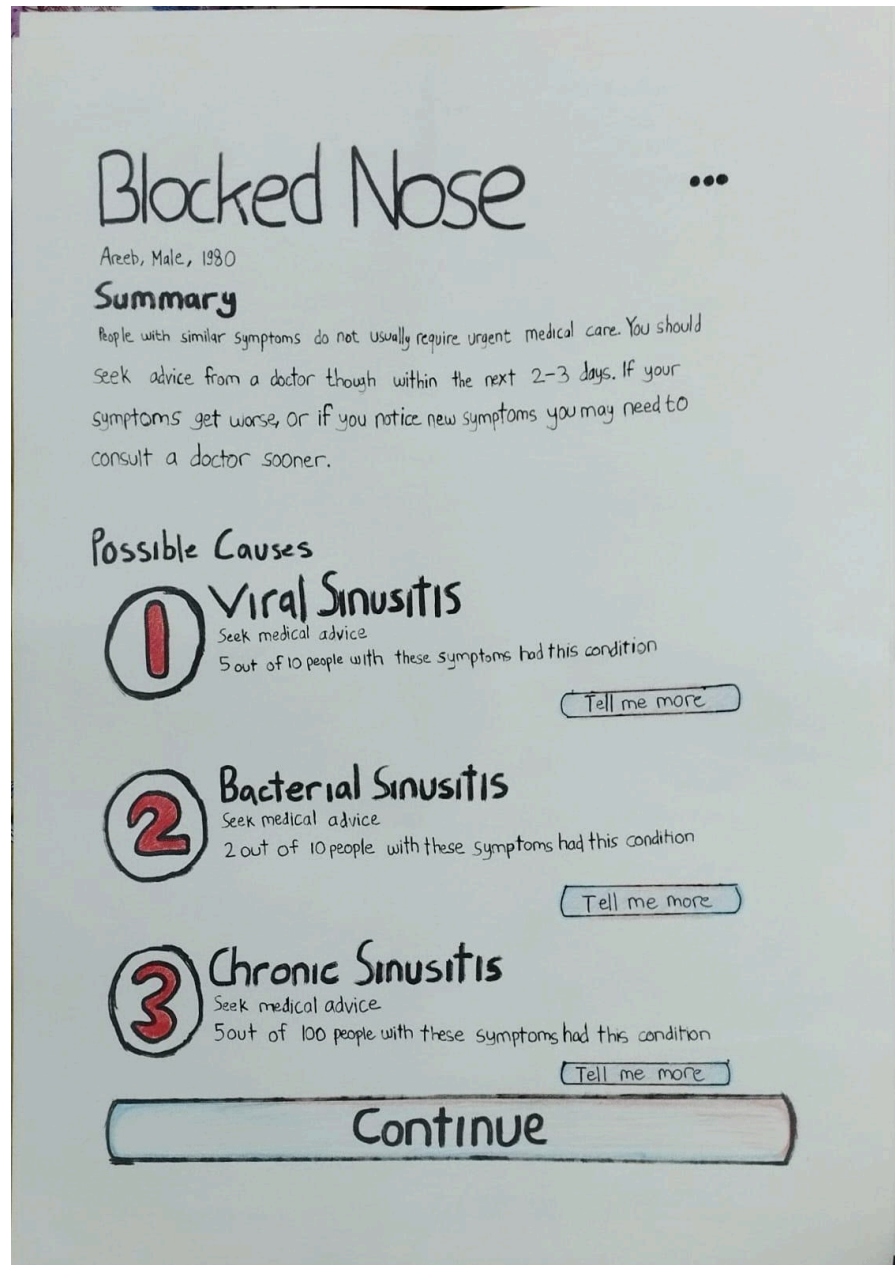 Blocked Nose
Areeb, Male, 1980
Summary
People with similar symptoms do not usually require urgent medical care. You should
seek advice from a doctor though within the next 2-3 days. If your
symptoms get worse, or if you notice new symptoms you may need to
consult a doctor sooner.
Possible Causes
1 Viral Sinusitis
Seek medical advice
5 out of 10 people with these symptoms had this condition
Tell me more
2 Bacterial Sinusitis
Seek medical advice
2 out of 10 people with these symptoms had this condition
Tell me more
3 Chronic Sinusitis
Seek medical advice
5 out of 100 people with these symptoms had this condition
Tell me more
Continue